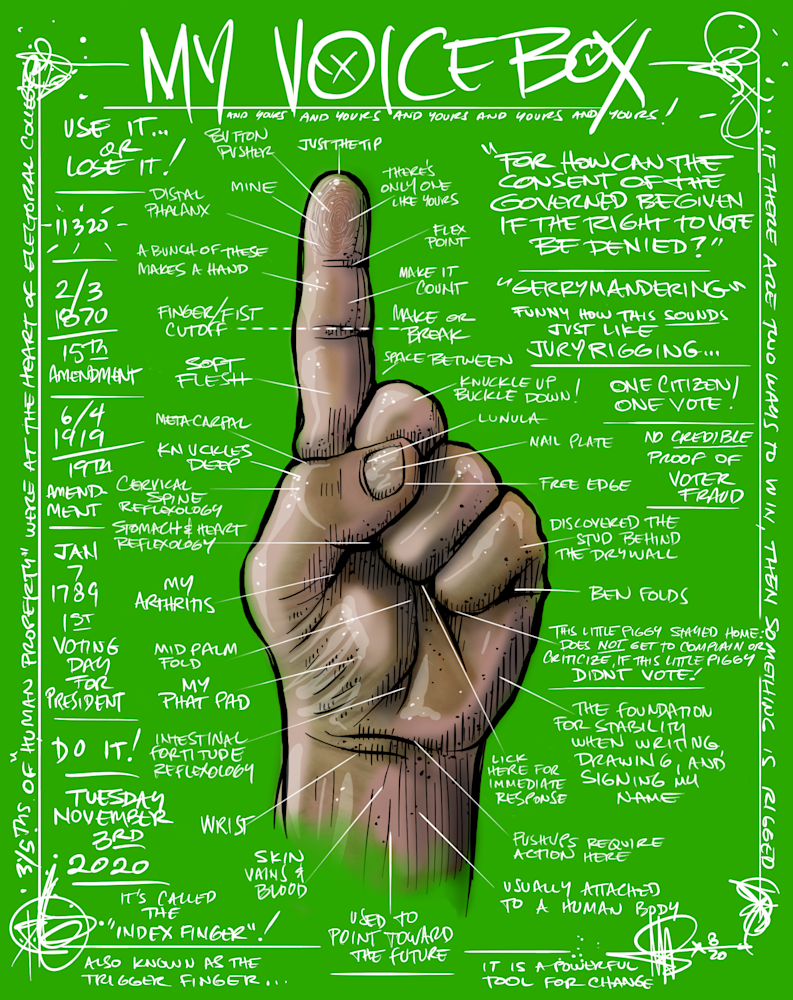 MY VOICE BOX
AND YOURS AND YOURS AND YOURS AND YOURS AND YOURS!
USE IT...
OR
LOSE IT!
-11320-
2/3
1870
15TH
AMENDMENT
6/4
1919
19TH
AMEND-
MENT
JAN
7
1789
1ST
VOTING
DAY
FOR
PRESIDENT
DO IT!
TUESDAY
NOVEMBER
3RD
2020
IT'S CALLED
THE
"INDEX FINGER"!
ALSO KNOWN AS THE
TRIGGER FINGER...
3/5THS OF "HUMAN PROPERTY" WERE AT THE HEART OF ELECTORAL COLLEGE
BUTTON
PUSHER
JUST THE TIP
MINE
DISTAL
PHALANX
A BUNCH OF THESE
MAKES A HAND
FINGER/FIST
CUTOFF
SOFT
FLESH
METACARPAL
KNUCKLES
DEEP
CERVICAL
SPINE
REFLEXOLOGY
STOMACH & HEART
REFLEXOLOGY
MY
ARTHRITIS
MID PALM
FOLD
MY
PHAT PAD
INTESTINAL
FORTITUDE
REFLEXOLOGY
WRIST
SKIN
VAINS &
BLOOD
USED TO
POINT TOWARD
THE FUTURE
THERE'S
ONLY ONE
LIKE YOURS
FLEX
POINT
MAKE IT
COUNT
MAKE OR
BREAK
SPACE BETWEEN
KNUCKLE UP
BUCKLE DOWN!
LUNULA
NAIL PLATE
FREE EDGE
DISCOVERED THE
STUD BEHIND
THE DRYWALL
BEN FOLDS
THIS LITTLE PIGGY STAYED HOME:
DOES NOT GET TO COMPLAIN OR
CRITICIZE, IF THIS LITTLE PIGGY
DIDNT VOTE!
THE FOUNDATION
FOR STABILITY
WHEN WRITING,
DRAWING, AND
SIGNING MY
NAME
LICK
HERE FOR
IMMEDIATE
RESPONSE
PUSHUPS REQUIRE
ACTION HERE
USUALLY ATTACHED
TO A HUMAN BODY
IT IS A POWERFUL
TOOL FOR CHANGE
"FOR HOW CAN THE
CONSENT OF THE
GOVERNED BE GIVEN
IF THE RIGHT TO VOTE
BE DENIED?"
"GERRYMANDERING"
FUNNY HOW THIS SOUNDS
JUST LIKE
JURY RIGGING...
ONE CITIZEN/
ONE VOTE.
NO CREDIBLE
PROOF OF
VOTER
FRAUD
IF THERE ARE TWO WAYS TO WIN, THEN SOMETHING IS RIGGED
8
20